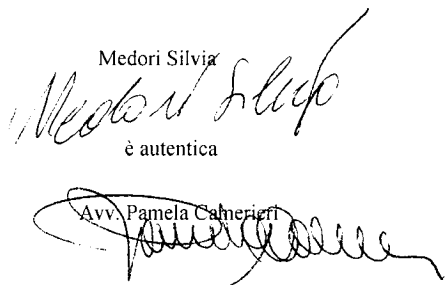 Medori Silvia
Medori Silvia
è autentica
Avv. Pamela Camerieri